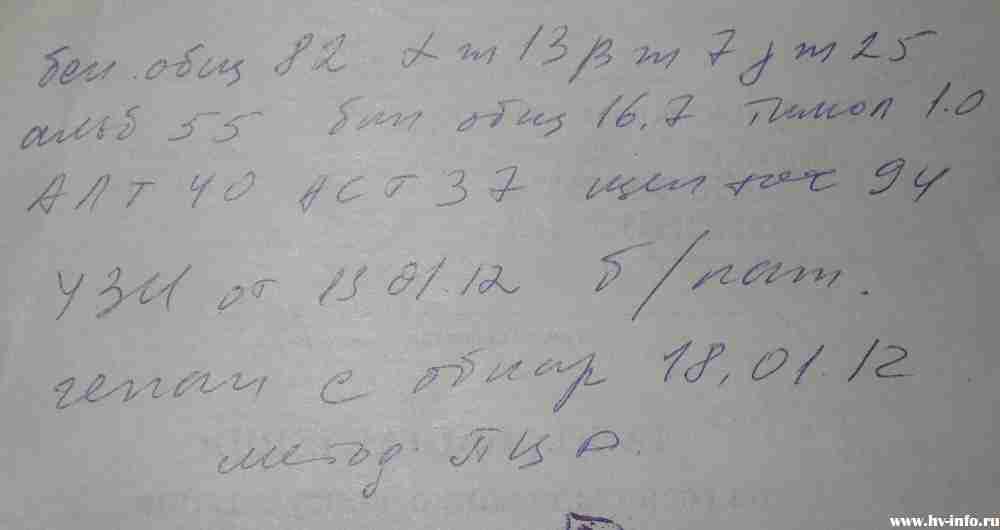 бел. общ 82 αm 13 βm 7 γm 25
альб 55 бил общ 16,7 тимол 1.0
АЛТ 40 АСТ 37 щел 94
УЗИ от 13 01.12 б/пат.
гепат с обнар 18,01.12
метод ПЦР.
www.hv-info.ru